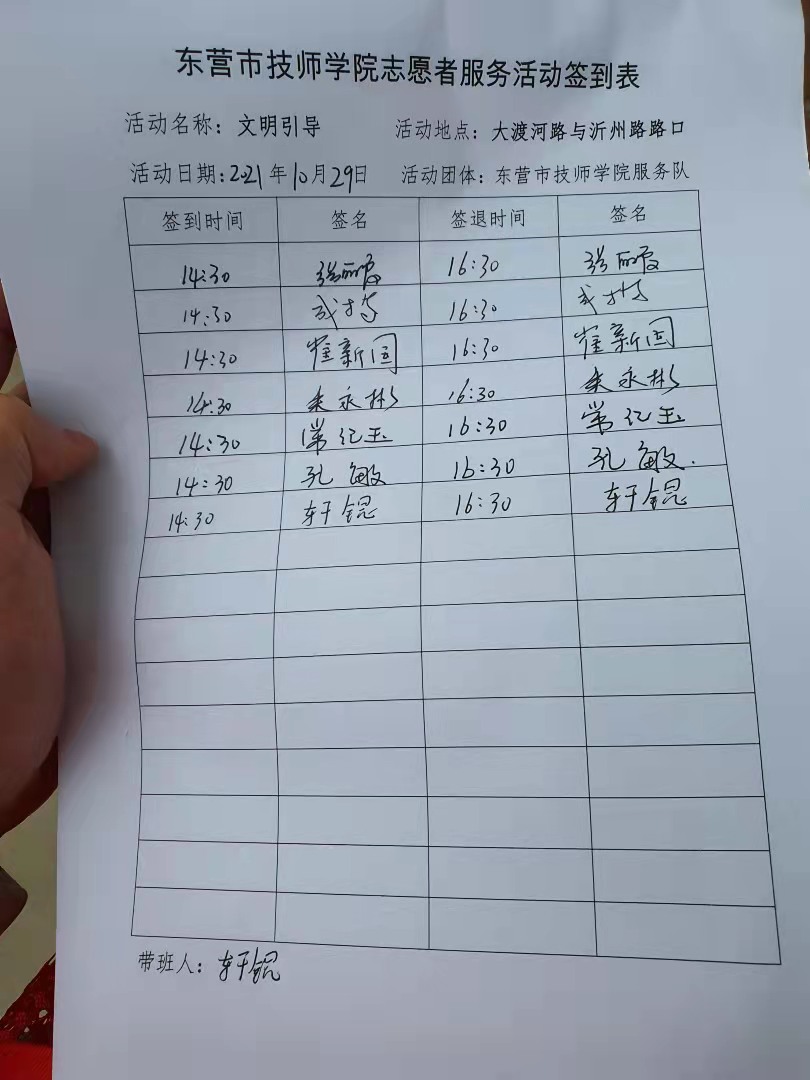 东营市技师学院志愿者服务活动签到表
活动名称：文明引导 活动地点：大渡河路与沂州路路口
活动日期：2021年10月29日 活动团体：东营市技师学院服务队
签到时间 签名 签退时间 签名
14:30 张丽霞 16:30 张丽霞
14:30 16:30
14:30 崔新国 16:30 崔新国
14:30 朱永彬 16:30 朱永彬
14:30 常纪玉 16:30 常纪玉
14:30 孔敏 16:30 孔敏.
14:30 轩锟 16:30 轩锟
带班人：轩锟